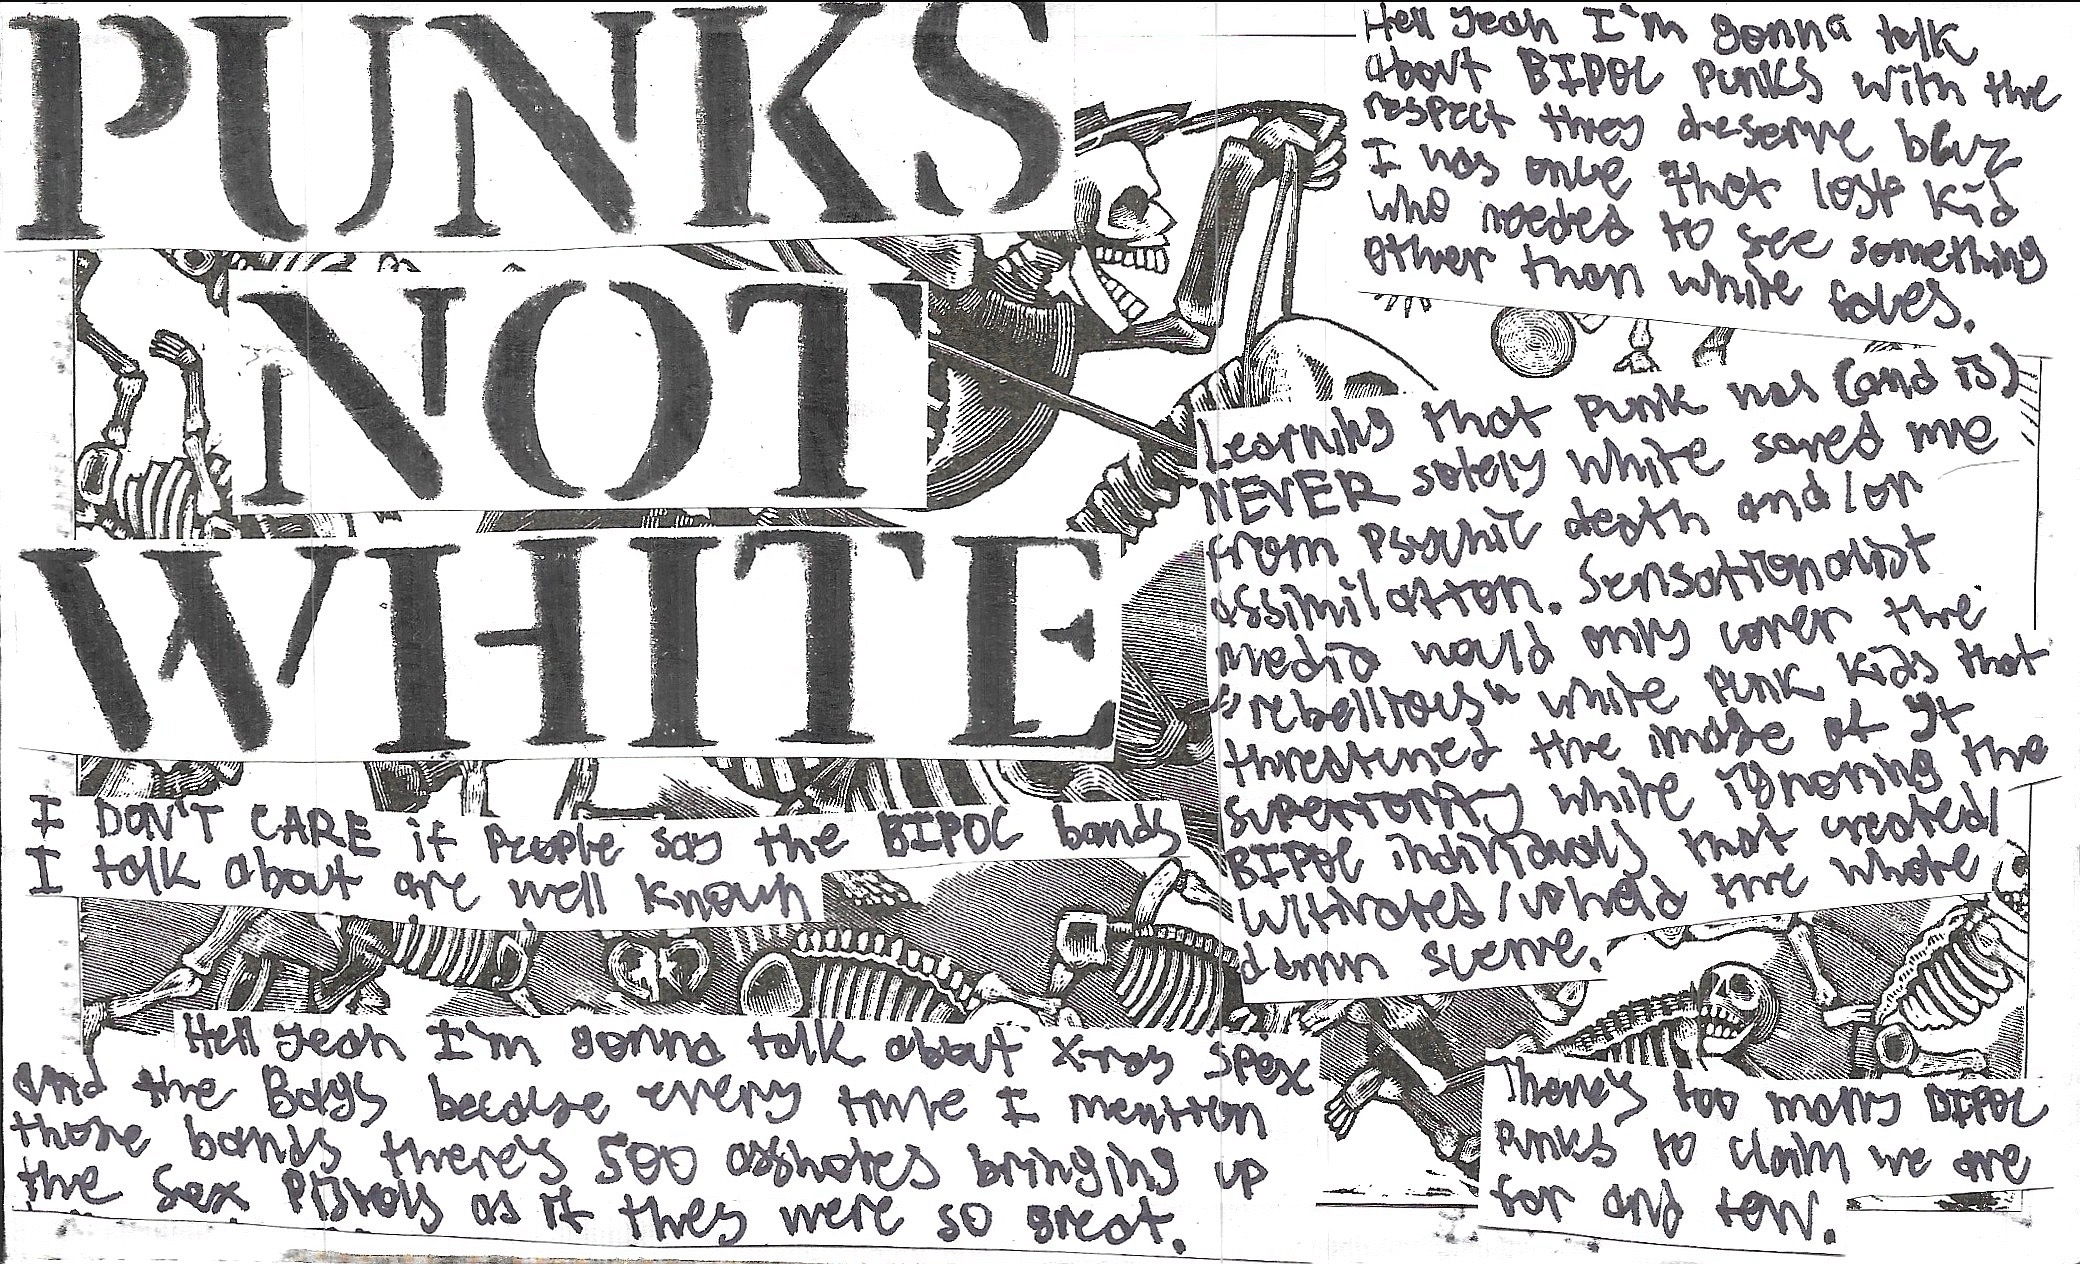 PUNKS
NOT
WHITE
I DON'T CARE if people say the BIPOC bands
I talk about are well known
Hell yeah I'm gonna talk about X-ray Spex
and the Bags because every time I mention
those bands there's 500 assholes bringing up
the Sex Pistols as if they were so great.
Hell yeah I'm gonna talk
about BIPOC punks with the
respect they deserve bcuz
I was once that lost kid
who needed to see something
other than white faces.
Learning that punk was (and is)
NEVER solely white saved me
from psychic death and/or
assimilation. Sensationalist
media would only cover the
"rebellious" white punk kids that
threatened the image of yt
superiority while ignoring the
BIPOC individuals that created/
cultivated/upheld the whole
damn scene.
There's too many BIPOC
punks to claim we are
far and few.